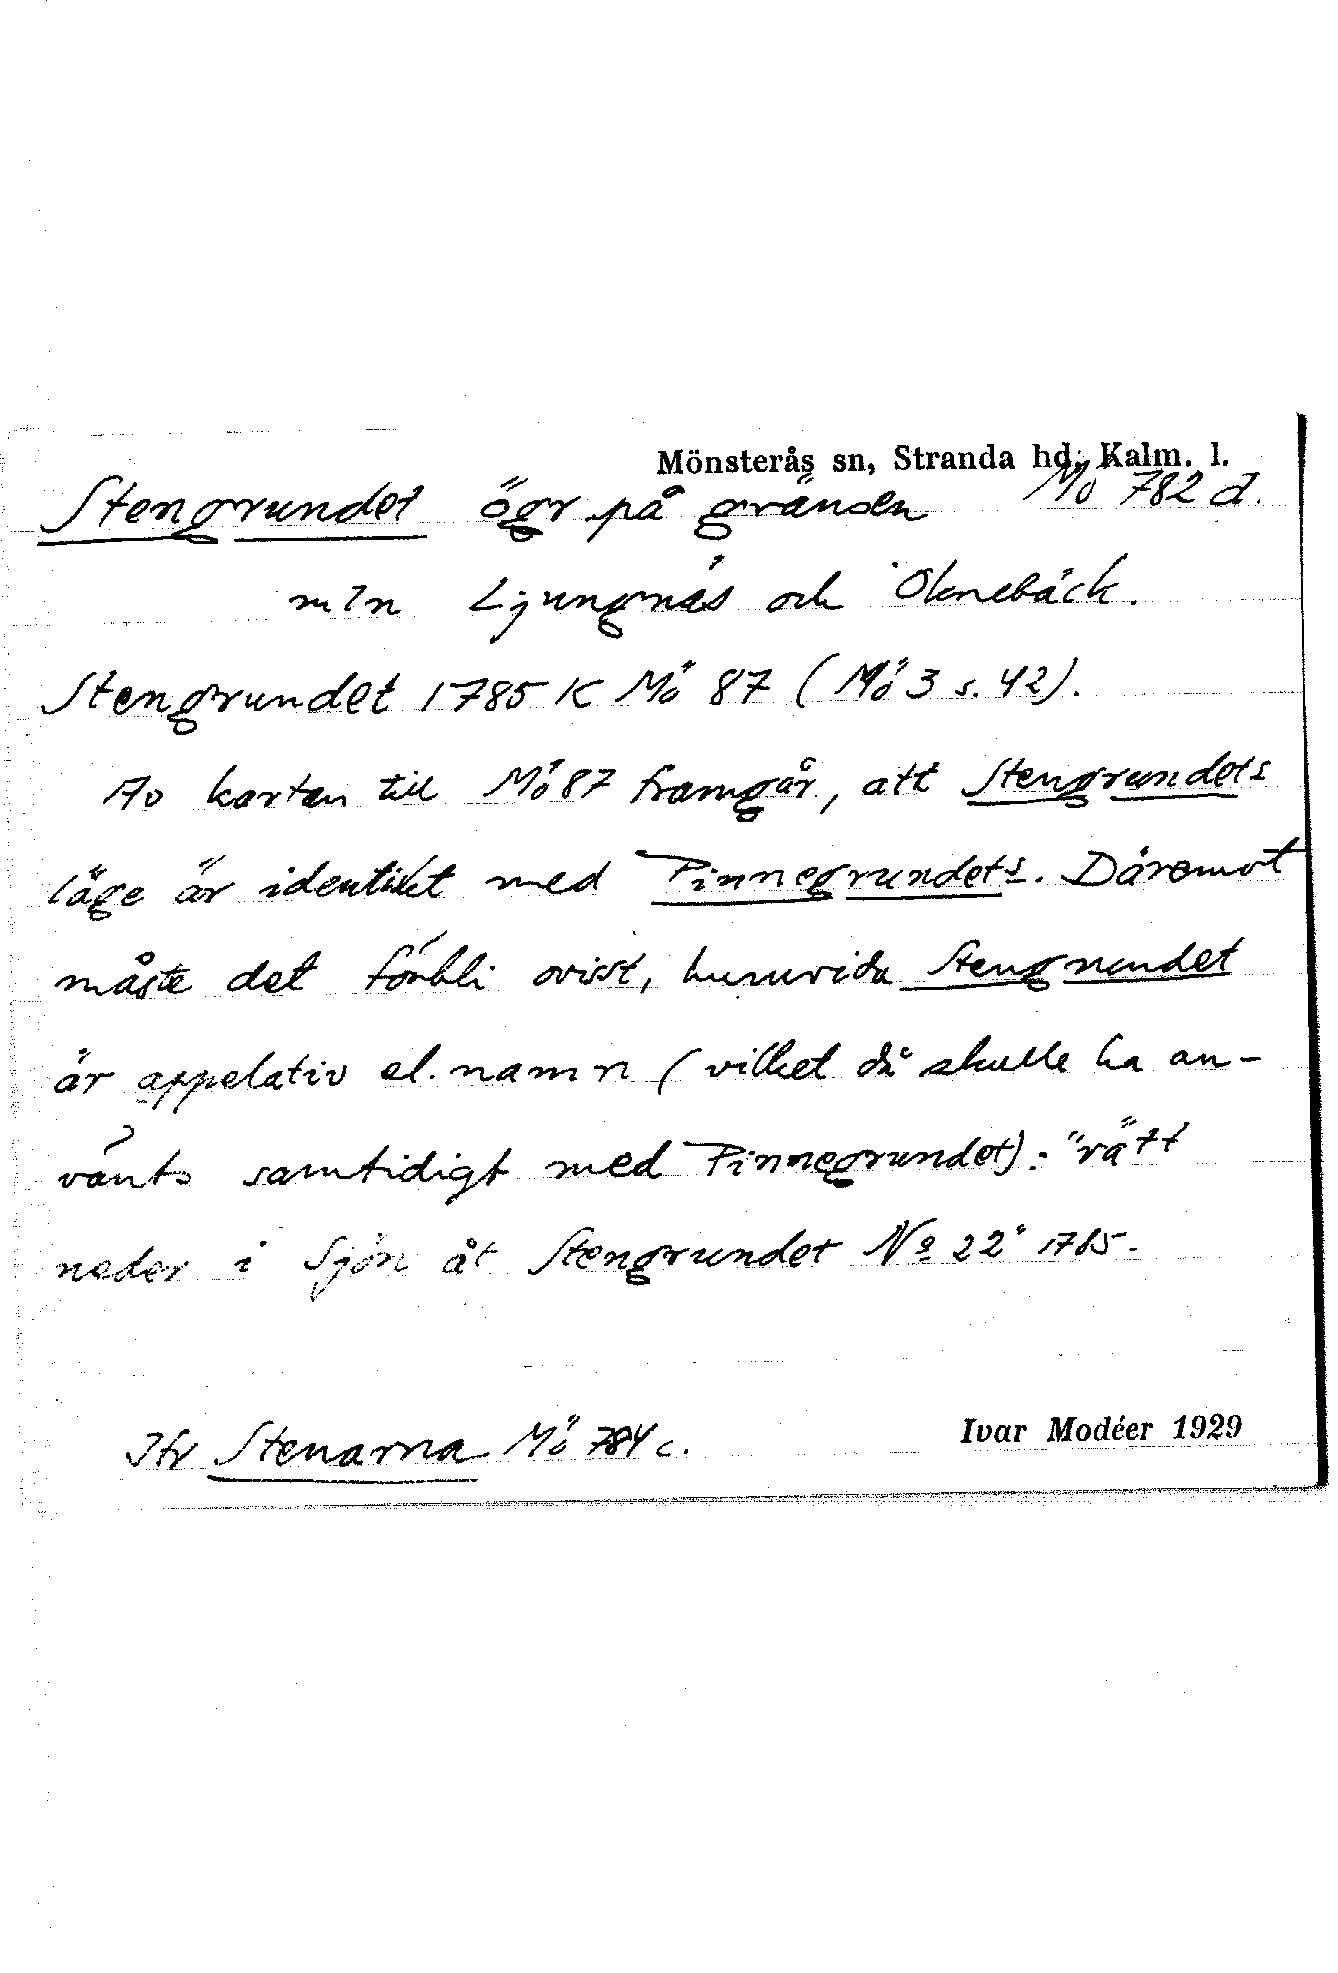 Mönsterås sn, Stranda hd, Kalm. l.
Stengrundet ögr på gränsen Mö 782 d.
mln Ljungnäs och Oknebäck.
Stengrundet 1785 K Mö 87 (Mö 3 s. 42).
Av kartan till Mö 87 framgår, att Stengrundets
läge är identiskt med Pinnegrundets. Däremot
måste det förbli ovisst, huruvida Stengrundet
är appelativ el. namn (vilket då skulle ha an-
vänts samtidigt med Pinnegrundet): "rätt
neder i Sjön åt Stengrundet No 22" 1785.
Jfr Stenarna Mö 784 c.
Ivar Modéer 1929